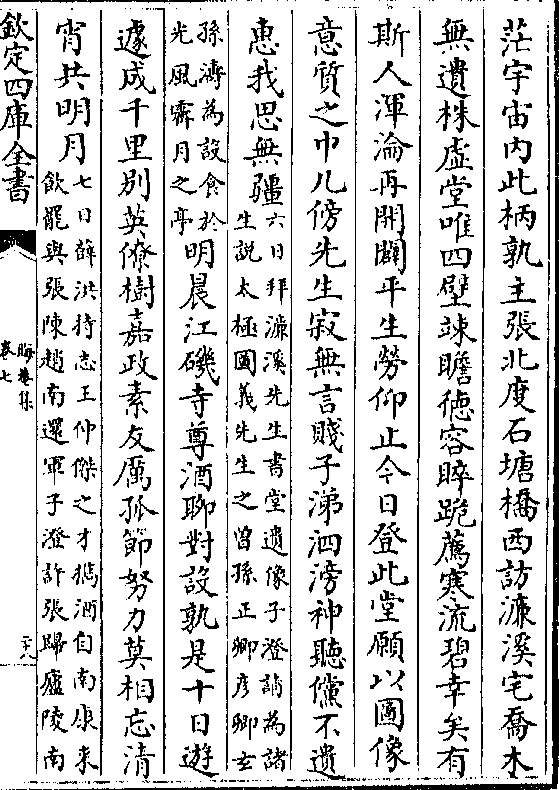 茫宇宙内此柄孰主張北度石塘橋西訪濂溪宅喬木
無遺株虛堂唯四壁竦瞻德容睟跪薦寒流碧幸矣有
斯人渾淪再開闢平生勞仰止今日登此堂願以圖像
意質之巾几傍先生寂無言賤子涕泗滂神聽儻不遺
惠我思無疆六日拜濂溪先生書堂遺像子澄請為諸
生説太極圖義先生之曾孫正卿彦卿玄
孫濤為設食於
光風霽月之亭明晨江磯寺尊酒聊對設孰是十日遊
遽成千里别英僚樹嘉政素友厲孤節努力莫相忘清
宵共明月七日薛洪持志王仲傑之才攜酒自南康来
飲罷與張陳趙南還軍子澄許張歸廬陵南
欽定四庫全書
晦菴集
卷七
二十八